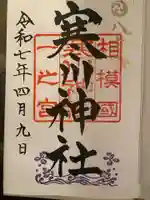 八
相模國
一之宮
寒川神社
令和七年四月九日